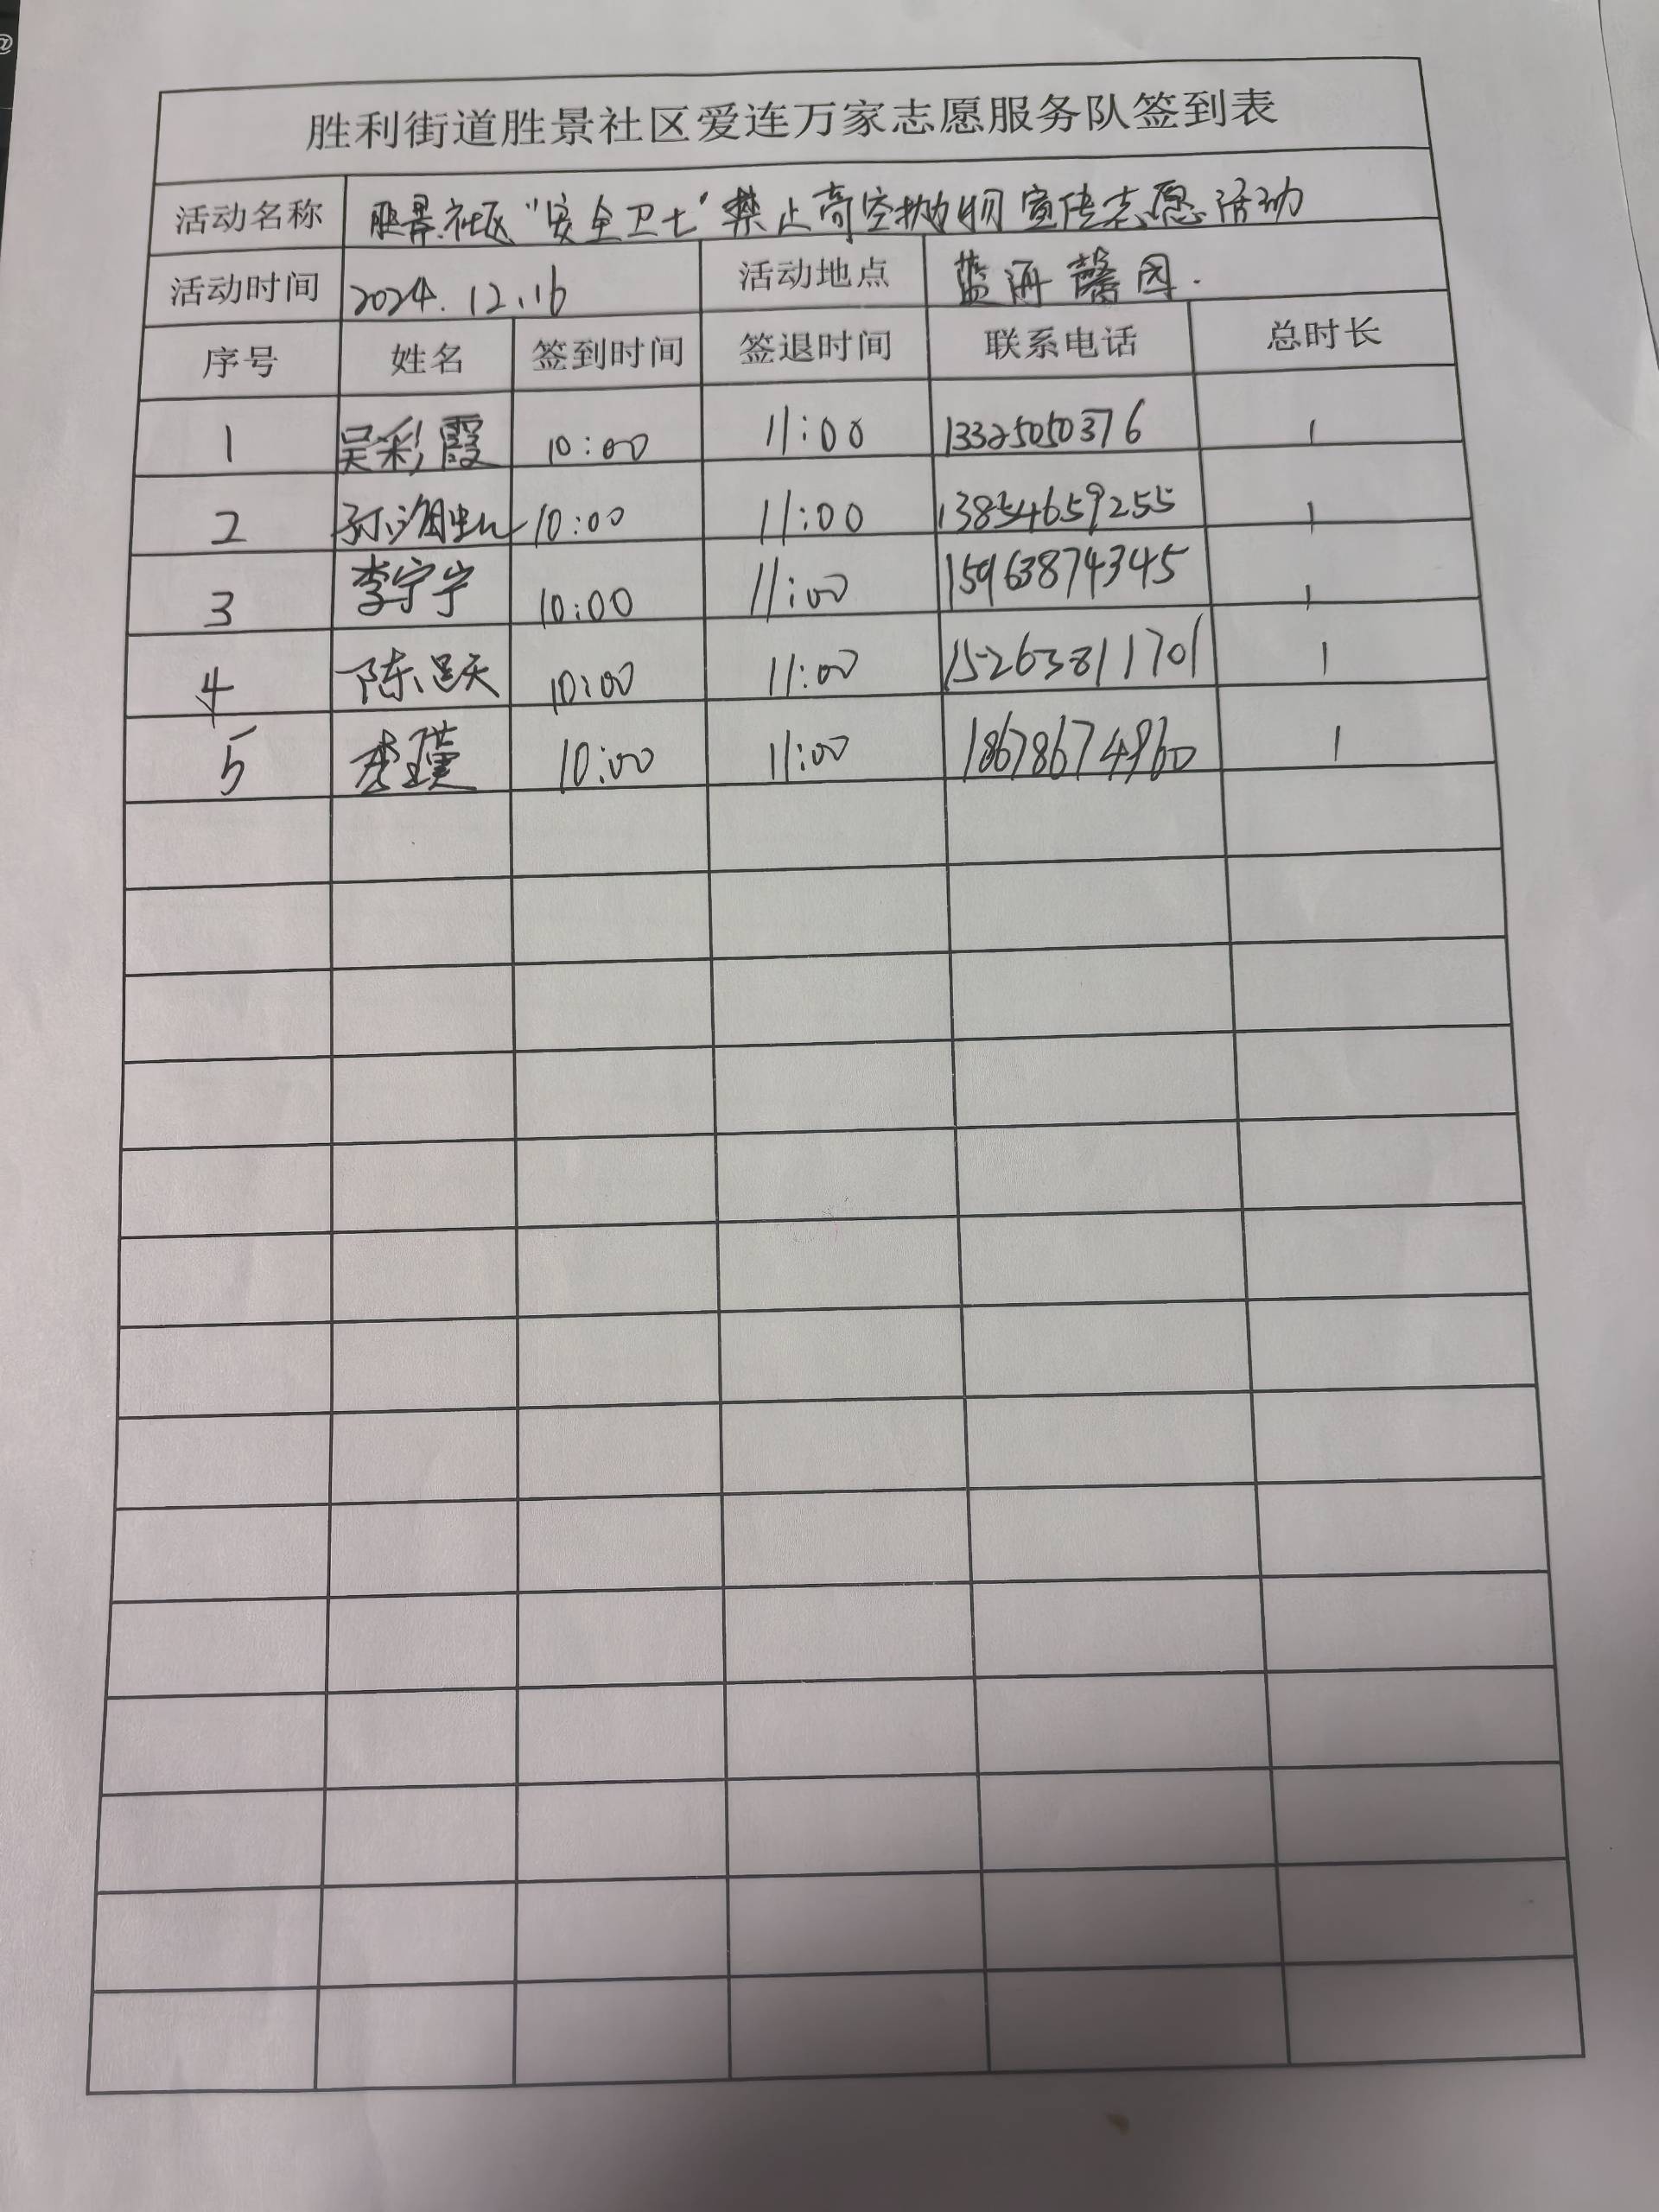 胜利街道胜景社区爱连万家志愿服务队签到表
活动名称 胜景社区“安全卫士”禁止高空抛物宣传志愿活动
活动时间 2024.12.16 活动地点 蓝海馨园.
序号 姓名 签到时间 签退时间 联系电话 总时长
1 吴彩霞 10:00 11:00 13325050376 1
2 孙 10:00 11:00 13854659255 1
3 李宁宁 10:00 11:00 15963874345 1
4 陈跃 10:00 11:00 15263811701 1
5 李瑾 10:00 11:00 18678674960 1